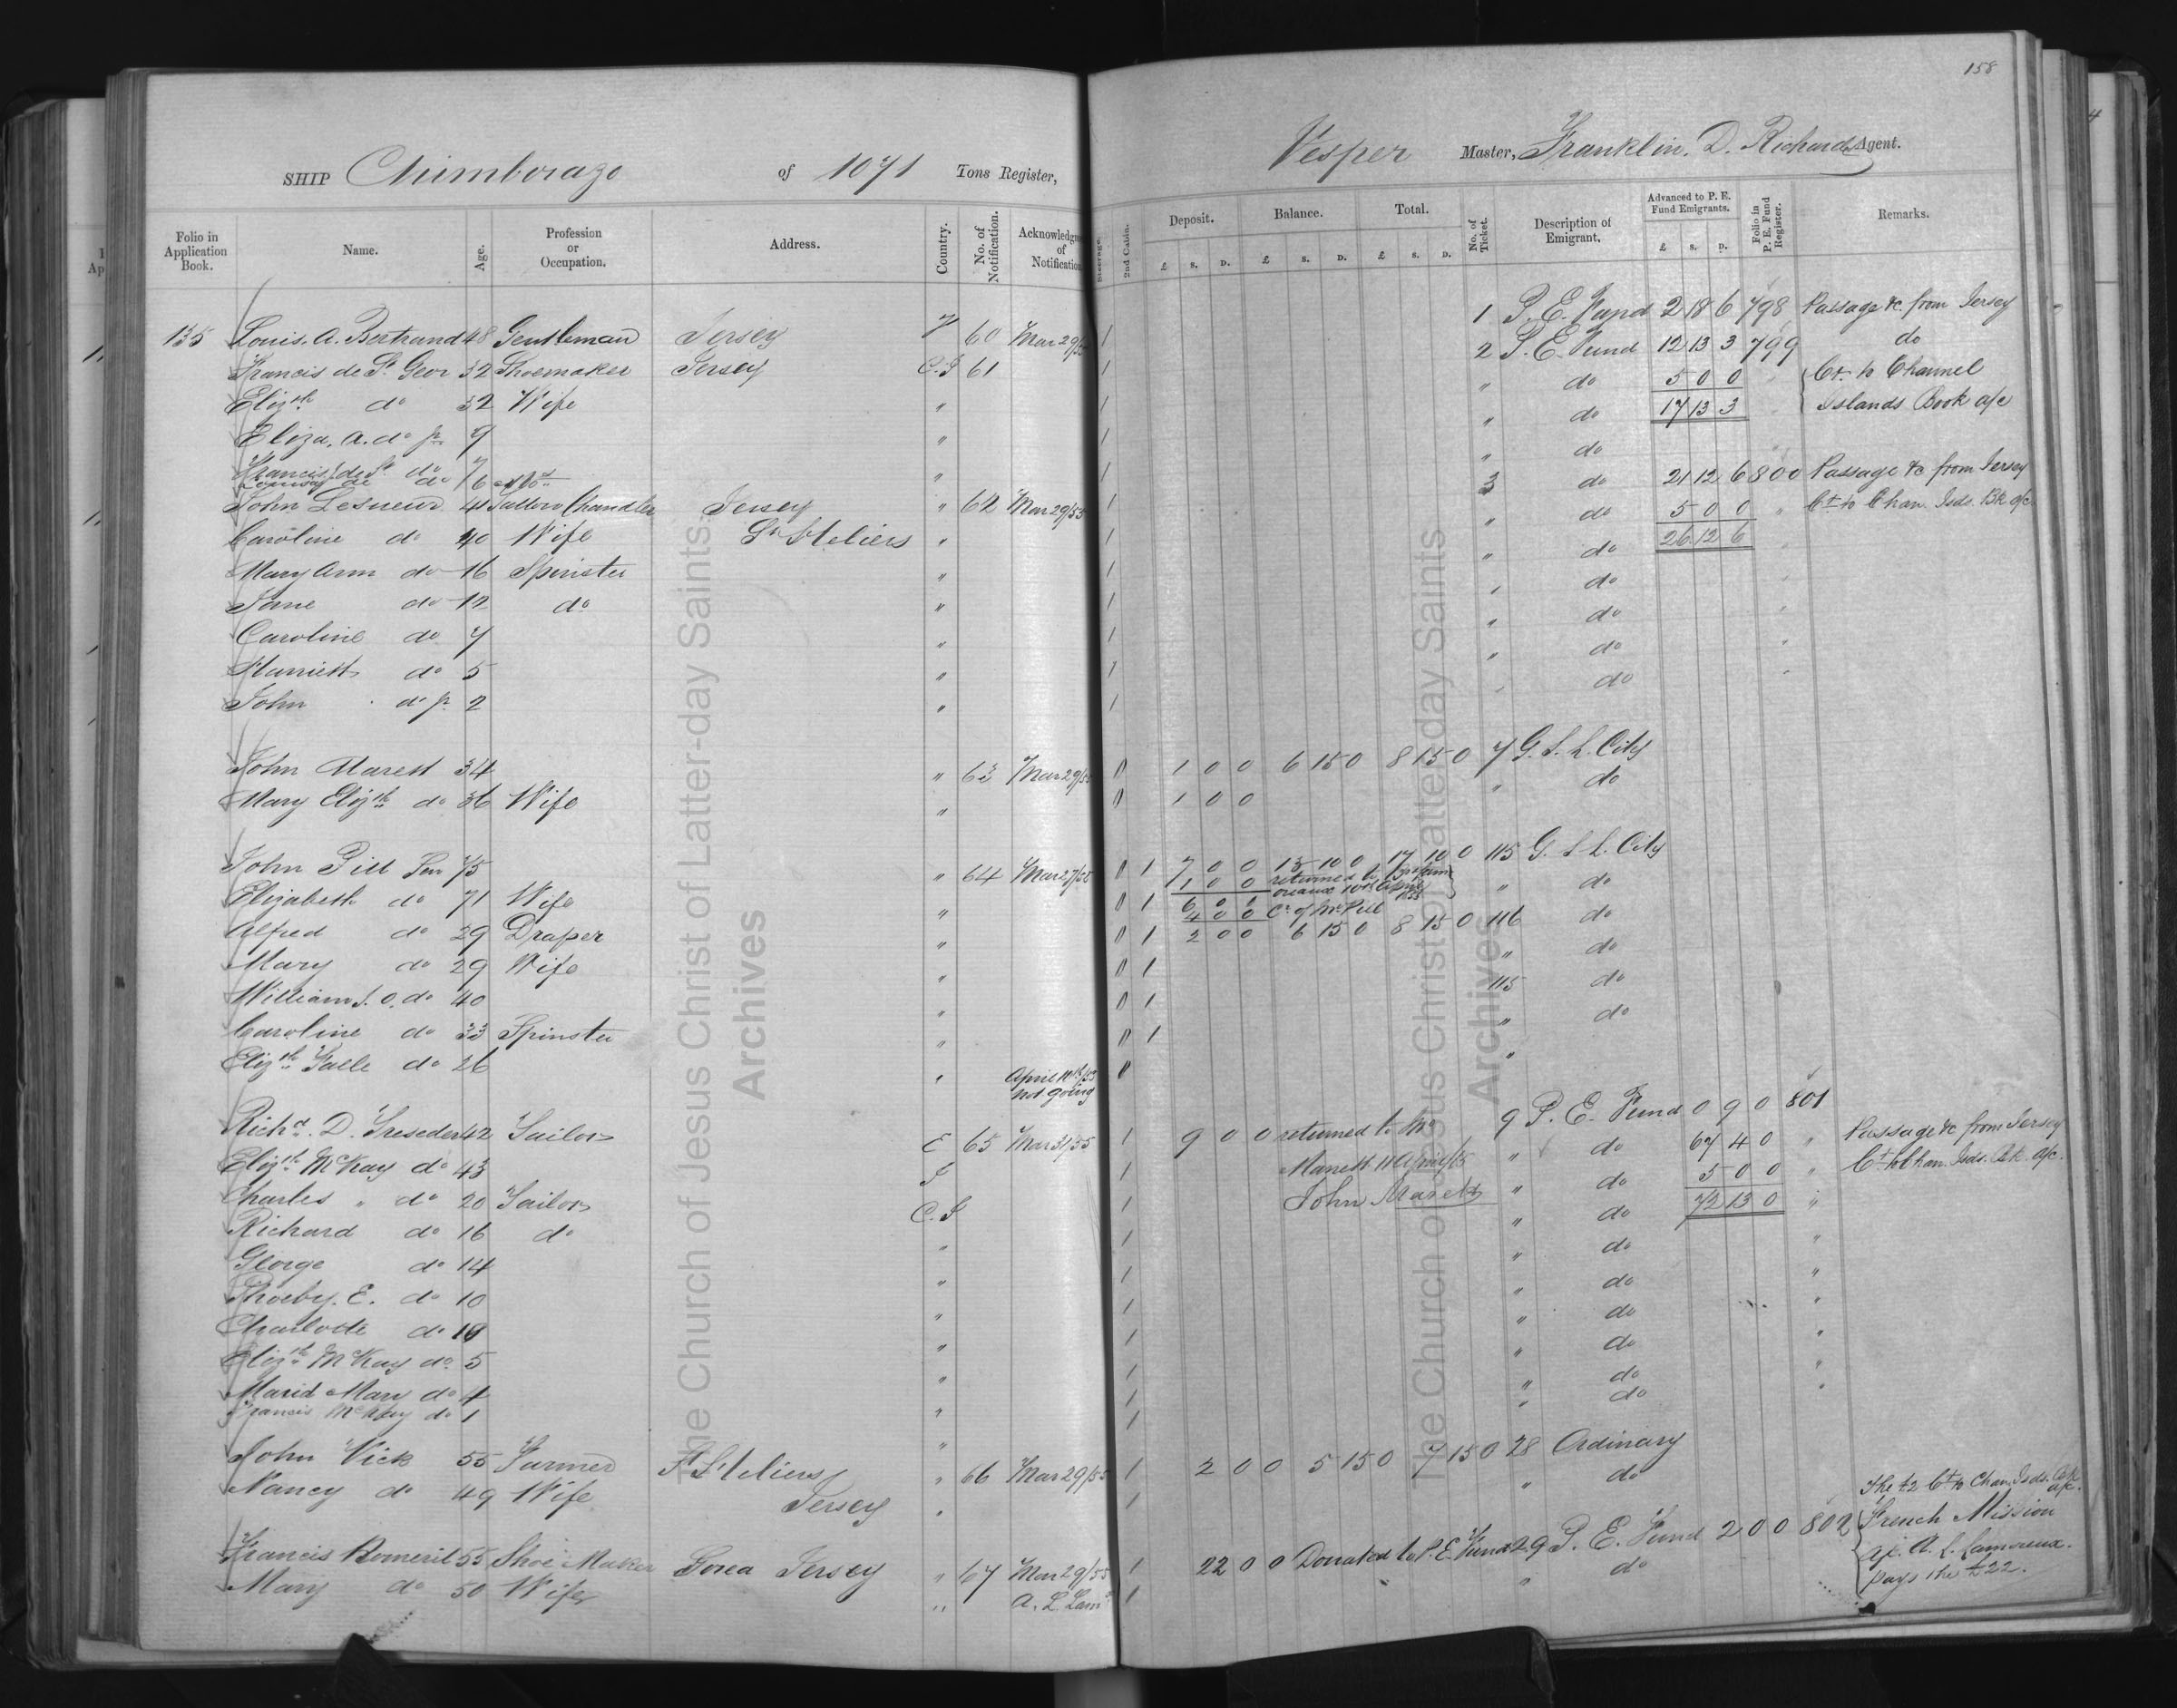 158
SHIP Chimborazo of 1071 Tons Register,
Vesper Master, Franklin. D. Richards Agent.
Folio in Application Book. Name. Age. Profession or Occupation. Address. Country. No. of Notification. Acknowledgment of Notification
Steerage. 2nd Cabin. Deposit. Balance. Total. No. of Ticket. Description of Emigrant. Advanced to P. E. Fund Emigrants. Folio in P. E. Fund Register. Remarks.
£ S. D. £ S. D. £ S. D. £ S. D.
135 Louis. A. Bertrand 48 Gentleman Jersey 60 Mar 29/55
Francis de St Geor 32 Shoemaker Jersey C.I 61
Elizth do 32 Wife "
Eliza. A. do 9 "
Francis de St do 7 "
do 6
John LeSueur 41 Tallow Chandler Jersey " 62 Mar 29/55
Caroline do 40 Wife St Heliers "
Mary Ann do 16 Spinster "
Jane do 12 do "
Caroline do 7 "
Harriett do 5 "
John do 2 "
John Marett 34 " 63 Mar 29/55
Mary Elizth do 36 Wife "
John Pill Sen 75 " 64 Mar 27/55
Elizabeth do 71 Wife "
Alfred do 29 Draper "
Mary do 29 Wife "
William J. O. do 40 "
Caroline do 33 Spinster "
Elizth Falle do 26 " April 11th/55
not going
Richd. D. Treseder 42 Sailor E 65 Mar 31/55
Elizth McKay do 43 I
Charles " do 20 Sailor C.I
Richard do 16 do "
George do 14 "
Phoeby. E. do 10 "
Charlotte do 10 "
Elizth McKay do 5 "
Marid Mary do 4 "
Francis McKay do 1 "
John Vick 55 Farmer St Heliers " 66 Mar 29/55
Nancy do 49 Wife Jersey "
Francis Romeril 55 Shoe Maker Gorea Jersey " 67 Mar 29/55
Mary do 50 Wife " A. L. Lam
1 P. E. Fund 2 18 6 798 Passage &c. from Jersey
2 P. E. Fund 12 13 3 799 do
" do 5 0 0 Ct. to Channel
" do 17 13 3 Islands Book a/c
" do
3 do 21 12 6 800 Passage &c from Jersey
" do 5 0 0 " Ct to Chan. Isds. Bk a/c
" do 26 12 6 "
" do "
" do "
" do "
" do "
1 0 0 6 15 0 8 15 0 7 G. S. L. City
1 0 0 " do
7 0 0 15 10 0 17 10 0 115 G. S. L. City
1 0 0 returned to " do
6 0 0
4 0 0 Ct of Mr Pill 116 do
2 0 0 6 15 0 8 15 0
" do
115 do
" do
"
9 P. E. Fund 0 9 0 801
9 0 0 returned to Mr " do 67 4 0 " Passage &c from Jersey
Marett 11 April/55 " do 5 0 0 " Ct to Chan. Isds. Bk. a/c.
John Marett " do 72 13 0 "
" do "
" do "
" do "
" do "
" do "
" do "
2 0 0 5 15 0 7 15 0 28 Ordinary
" do
The £2 Ct to Chan. Isds. Bk a/c.
22 0 0 Donated to P. E. Fund 29 P. E. Fund 2 0 0 802 French Mission
" do a/c. A. L. Lamoreux.
pays the £22.
The Church of Jesus Christ of Latter-day Saints
Archives
The Church of Jesus Christ of Latter-day Saints
Archives